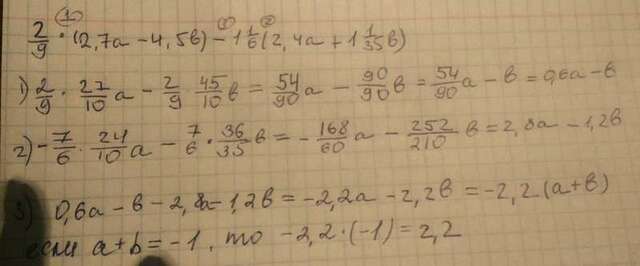 ① ③ ②
2/9 · (2,7a − 4,5b) − 1 1/6 (2,4a + 1 1/35 b)
1) 2/9 · 27/10 a − 2/9 · 45/10 b = 54/90 a − 90/90 b = 54/90 a − b = 0,6a − b
2) − 7/6 · 24/10 a − 7/6 · 36/35 b = − 168/60 a − 252/210 b = 2,8a − 1,2b
3) 0,6a − b − 2,8a − 1,2b = −2,2a − 2,2b = −2,2(a+b)
если a+b = −1, то −2,2 · (−1) = 2,2